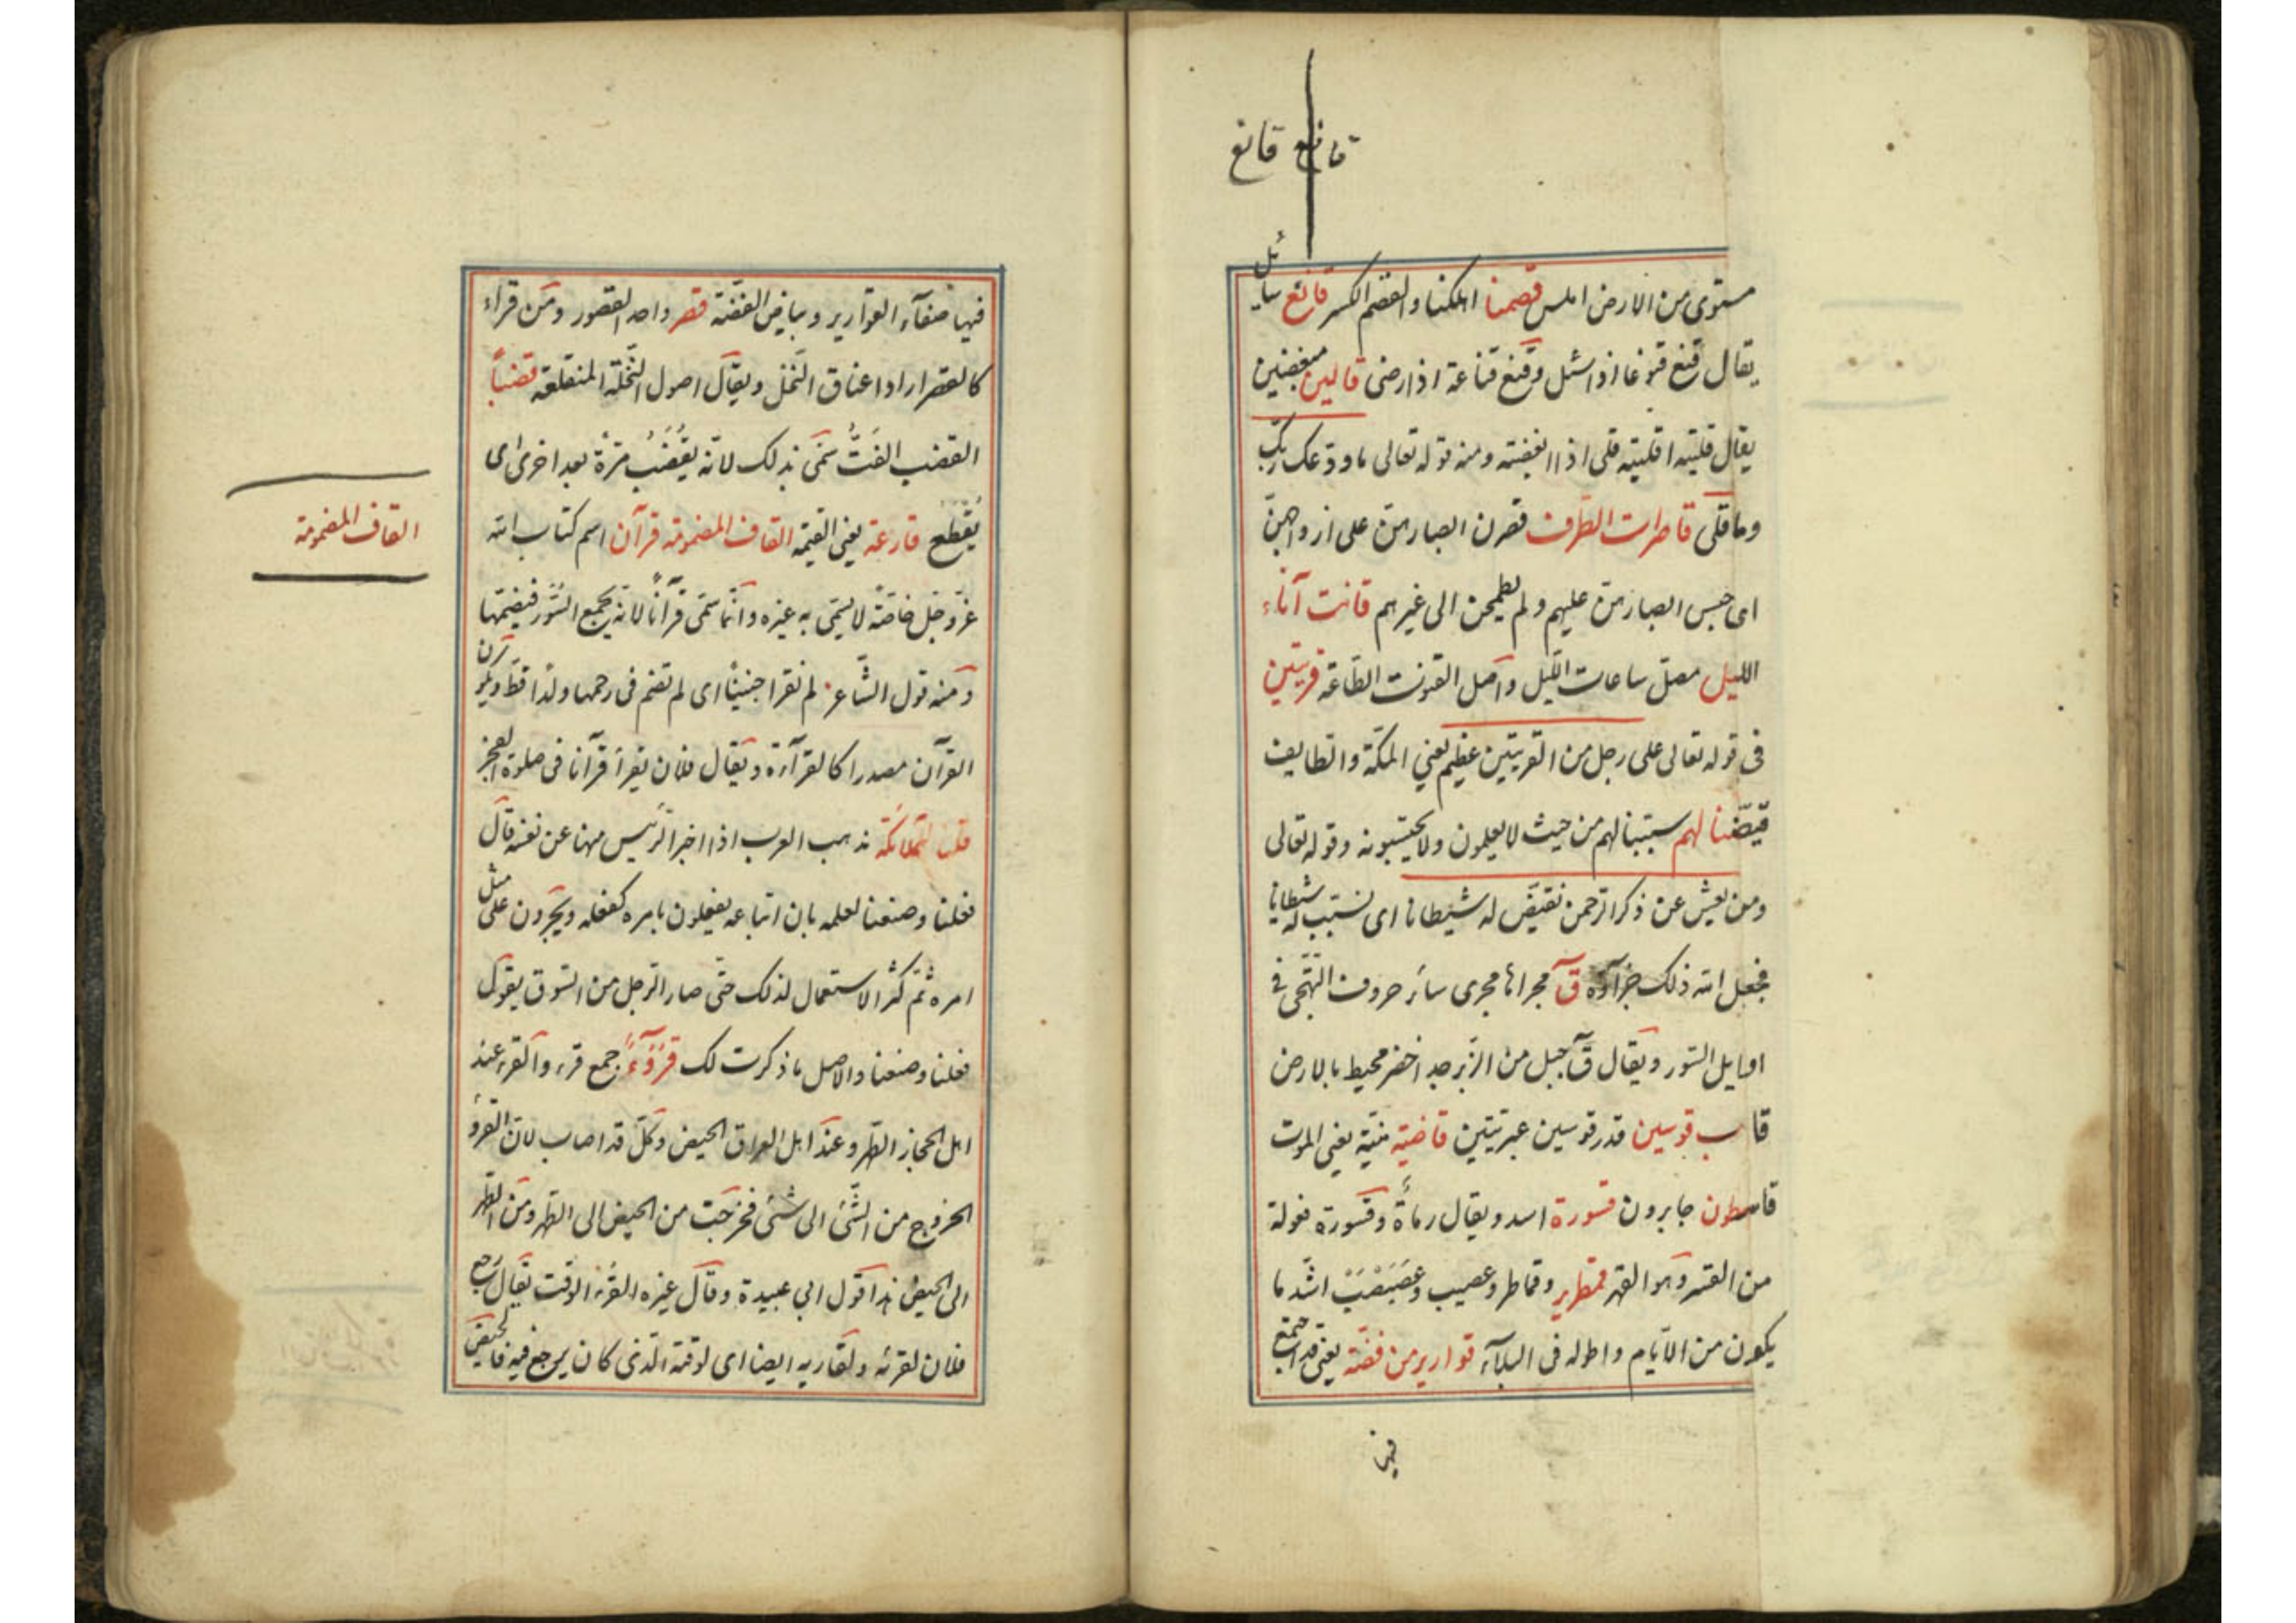 قانع قانع
مستوى من الارض املس قصمنا اهلكنا والقصم الكسر قانع سايل
يقال قنع قنوعا اذا سئل وقنع قناعة اذا رضى قالين مبغضين
يقال قليته اقليته قلى اذا ابغضته ومنه قوله تعالى ما ودعك ربك
وما قلى قاصرات الطرف قصرن ابصارهن على ازواجهن
اى حبس ابصارهن عليهم ولم يطمحن الى غيرهم قانت آناء
الليل مصل ساعات الليل واصل القنوت الطاعة قريتين
فى قوله تعالى على رجل من القريتين عظيم يعني المكة والطايف
قيضنا لهم سببنا لهم من حيث لا يعلمون ولا يحتسبونه وقوله تعالى
ومن يعش عن ذكر الرحمن نقيض له شيطانا اى نسبب له شيطانا
فجعل الله ذلك جزآؤه قٓ مجراها مجرى سائر حروف التهجى فى
اوايل السور ويقال قٓ جبل من الزبرجد اخضر محيط بالارض
قاب قوسين قدر قوسين عربيتين قاضية منية يعني الموت
قاسطون جابرون قسورة اسد ويقال رماة وقسورة فعولة
من القسر وهو القهر قمطرير وقماطر وعصيب وعصبصب اشد ما
يكون من الايام واطوله فى البلآء قوارير من فضة يعني قد اجتمع
فيها
فيها صفآء القوارير وبياض الفضة قصر واحد القصور ومن قراء
كالقصر اراد اعناق النخل ويقال اصول النخلة المنقلعة قضبا
القضب القت سمى بذلك لانه يقضب مرة بعد اخرى اى
يقطع قارعة يعني القيمة القاف المضمومة قرآن اسم كتاب الله
القاف المضمومة
عز وجل خاصة لا يسمى به غيره وانما سمى قرآنا لانه يجمع السور فيضمها
ومنه قول الشاعر لم تقرا جنينا اى لم تضم فى رحمها ولدا قط ويكون
القرآن مصدرا كالقرآءة ويقال فلان يقرأ قرآنا فى صلوة الفجر
قلنا للملائكة مذهب العرب اذا اخبر الرئيس منها عن نفسه قال
فعلنا وصنعنا لعلمه بان اتباعه يفعلون بامره كفعله ويجرون على مثل
امره ثم كثر الاستعمال لذلك حتى صار الرجل من السوق يقول
فعلنا وصنعنا والاصل ما ذكرت لك قروء جمع قرء والقرء عند
اهل الحجاز الطهر وعند اهل العراق الحيض وكل قد اصاب لان القرء
الخروج من الشئ الى شئ فخرجت من الحيض الى الطهر ومن الطهر
الى الحيض هذا قول ابي عبيدة وقال غيره القرء الوقت يقال رجع
فلان لقرئه ولقاريه ايضا اى لوقته الذى كان يرجع فيه فالحيض